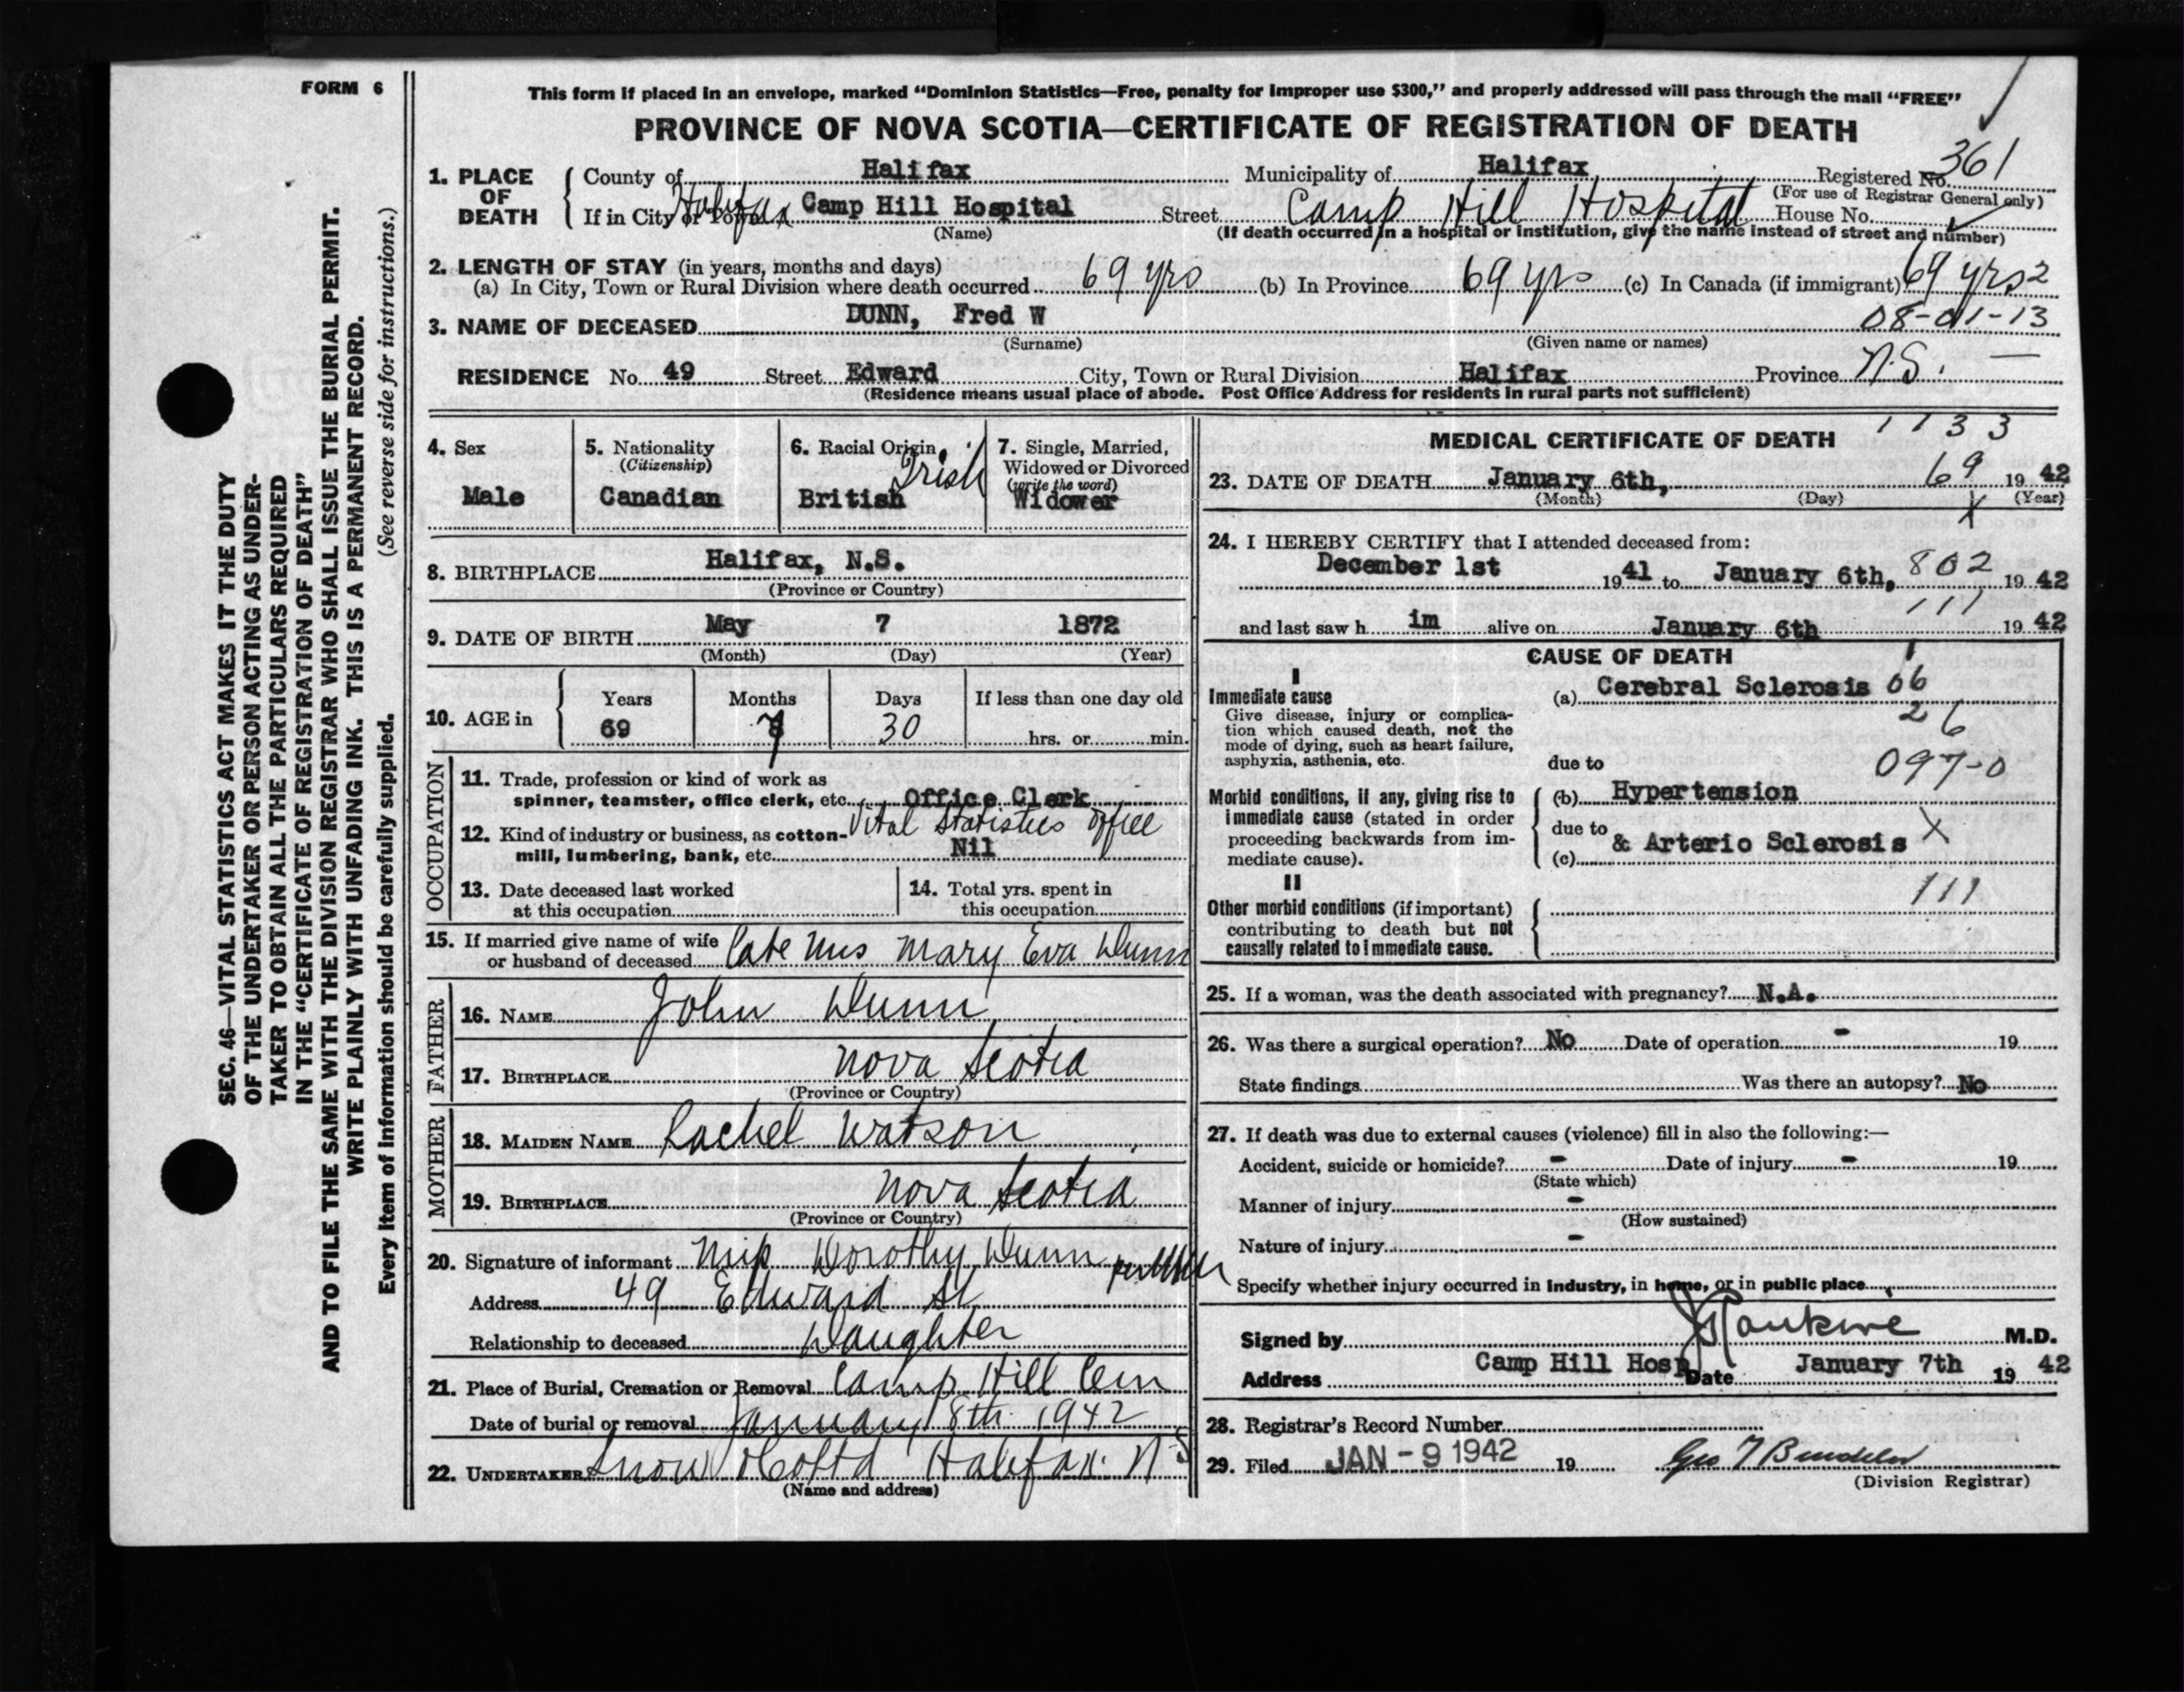 FORM 6
This form if placed in an envelope, marked “Dominion Statistics—Free, penalty for improper use $300,” and properly addressed will pass through the mail “FREE”
PROVINCE OF NOVA SCOTIA—CERTIFICATE OF REGISTRATION OF DEATH
SEC. 46—VITAL STATISTICS ACT MAKES IT THE DUTY
OF THE UNDERTAKER OR PERSON ACTING AS UNDER-
TAKER TO OBTAIN ALL THE PARTICULARS REQUIRED
IN THE “CERTIFICATE OF REGISTRATION OF DEATH”
AND TO FILE THE SAME WITH THE DIVISION REGISTRAR WHO SHALL ISSUE THE BURIAL PERMIT.
WRITE PLAINLY WITH UNFADING INK. THIS IS A PERMANENT RECORD.
Every item of information should be carefully supplied. (See reverse side for instructions.)
1. PLACE OF DEATH County of Halifax Municipality of Halifax Registered No. 361
(For use of Registrar General only)
If in City or Town Halifax Camp Hill Hospital Street Camp Hill Hospital House No.
(Name) (If death occurred in a hospital or institution, give the name instead of street and number)
2. LENGTH OF STAY (in years, months and days)
(a) In City, Town or Rural Division where death occurred 69 yrs (b) In Province 69 yrs (c) In Canada (if immigrant) 69 yrs 2
3. NAME OF DECEASED DUNN, Fred W 08-01-13
(Surname) (Given name or names)
RESIDENCE No. 49 Street Edward City, Town or Rural Division Halifax Province N.S. —
(Residence means usual place of abode. Post Office Address for residents in rural parts not sufficient)
4. Sex Male
5. Nationality (Citizenship) Canadian
6. Racial Origin Irish British
7. Single, Married, Widowed or Divorced (write the word) Widower
8. BIRTHPLACE Halifax, N.S.
(Province or Country)
9. DATE OF BIRTH May 7 1872
(Month) (Day) (Year)
10. AGE in Years 69 Months 7 Days 30 If less than one day old hrs. or min.
OCCUPATION
11. Trade, profession or kind of work as
spinner, teamster, office clerk, etc. Office Clerk
12. Kind of industry or business, as cotton- Vital Statistics Office
mill, lumbering, bank, etc. Nil
13. Date deceased last worked
at this occupation
14. Total yrs. spent in
this occupation
15. If married give name of wife
or husband of deceased late Mrs Mary Eva Dunn
FATHER
16. NAME John Dunn
17. BIRTHPLACE Nova Scotia
(Province or Country)
MOTHER
18. MAIDEN NAME Rachel Watson
19. BIRTHPLACE Nova Scotia
(Province or Country)
20. Signature of informant Miss Dorothy Dunn
Address 49 Edward St
Relationship to deceased Daughter
21. Place of Burial, Cremation or Removal Camp Hill Cem
Date of burial or removal January 8th 1942
22. UNDERTAKER Snow & Co Ltd Halifax N S
(Name and address)
1133
MEDICAL CERTIFICATE OF DEATH
23. DATE OF DEATH January 6th, 69 19 42
(Month) (Day) (Year)
X
24. I HEREBY CERTIFY that I attended deceased from:
December 1st 19 41 to January 6th, 802 19 42
111
and last saw h im alive on January 6th 19 42
CAUSE OF DEATH
I
Immediate cause (a) Cerebral Sclerosis 06
Give disease, injury or complica-
tion which caused death, not the
mode of dying, such as heart failure,
asphyxia, asthenia, etc.
26
due to 097-0
Morbid conditions, if any, giving rise to (b) Hypertension
immediate cause (stated in order due to X
proceeding backwards from im- & Arterio Sclerosis
mediate cause). (c)
II
111
Other morbid conditions (if important)
contributing to death but not
causally related to immediate cause.
25. If a woman, was the death associated with pregnancy? N.A.
26. Was there a surgical operation? No Date of operation - 19
State findings Was there an autopsy? No
27. If death was due to external causes (violence) fill in also the following:—
Accident, suicide or homicide? - Date of injury - 19
(State which)
Manner of injury -
(How sustained)
Nature of injury -
Specify whether injury occurred in industry, in home, or in public place
Signed by Rankine M.D.
Address Camp Hill Hosp Date January 7th 19 42
28. Registrar's Record Number
29. Filed JAN - 9 1942 19
(Division Registrar)